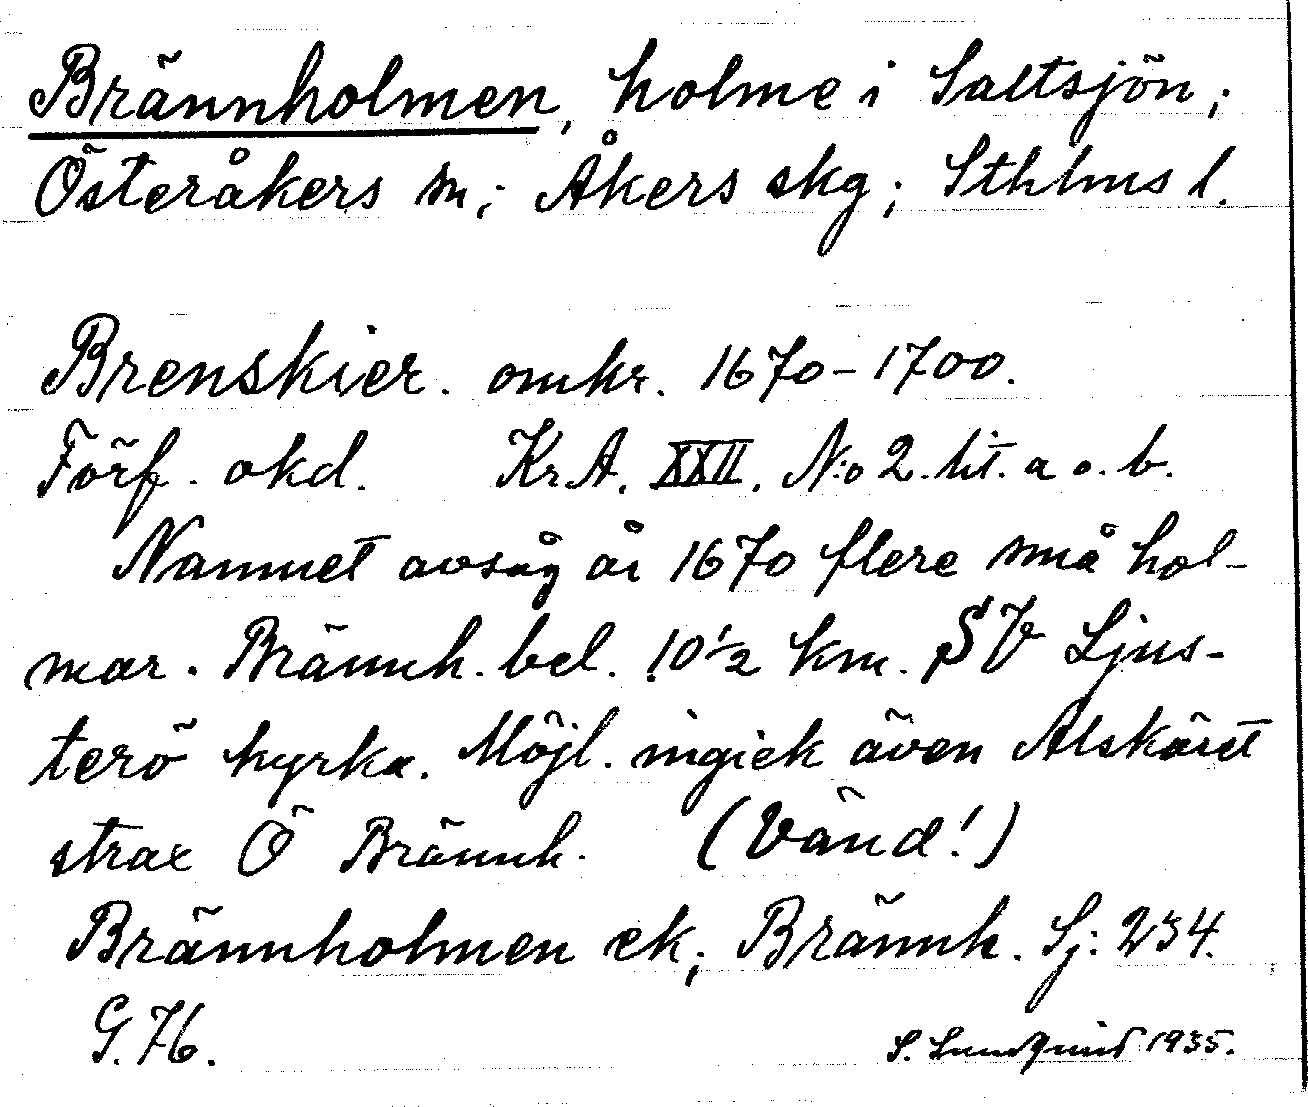 Brännholmen, holme i Saltsjön;
Österåkers sn; Åkers skg; Sthlms l.
Brenskier. omkr. 1670-1700.
Förf. okd. Kr.A. XXII. N:o 2. lit. a o. b.
Namnet avsåg år 1670 flere små hol-
mar. Brännh. bel. 10 1/2 km. SV Ljus-
terö kyrka. Möjl. ingick även Alskäret
strax Ö Brännh. (Vänd!)
Brännholmen ek; Brännh. Sj: 234.
G. 76. S. Lundquist 1935.